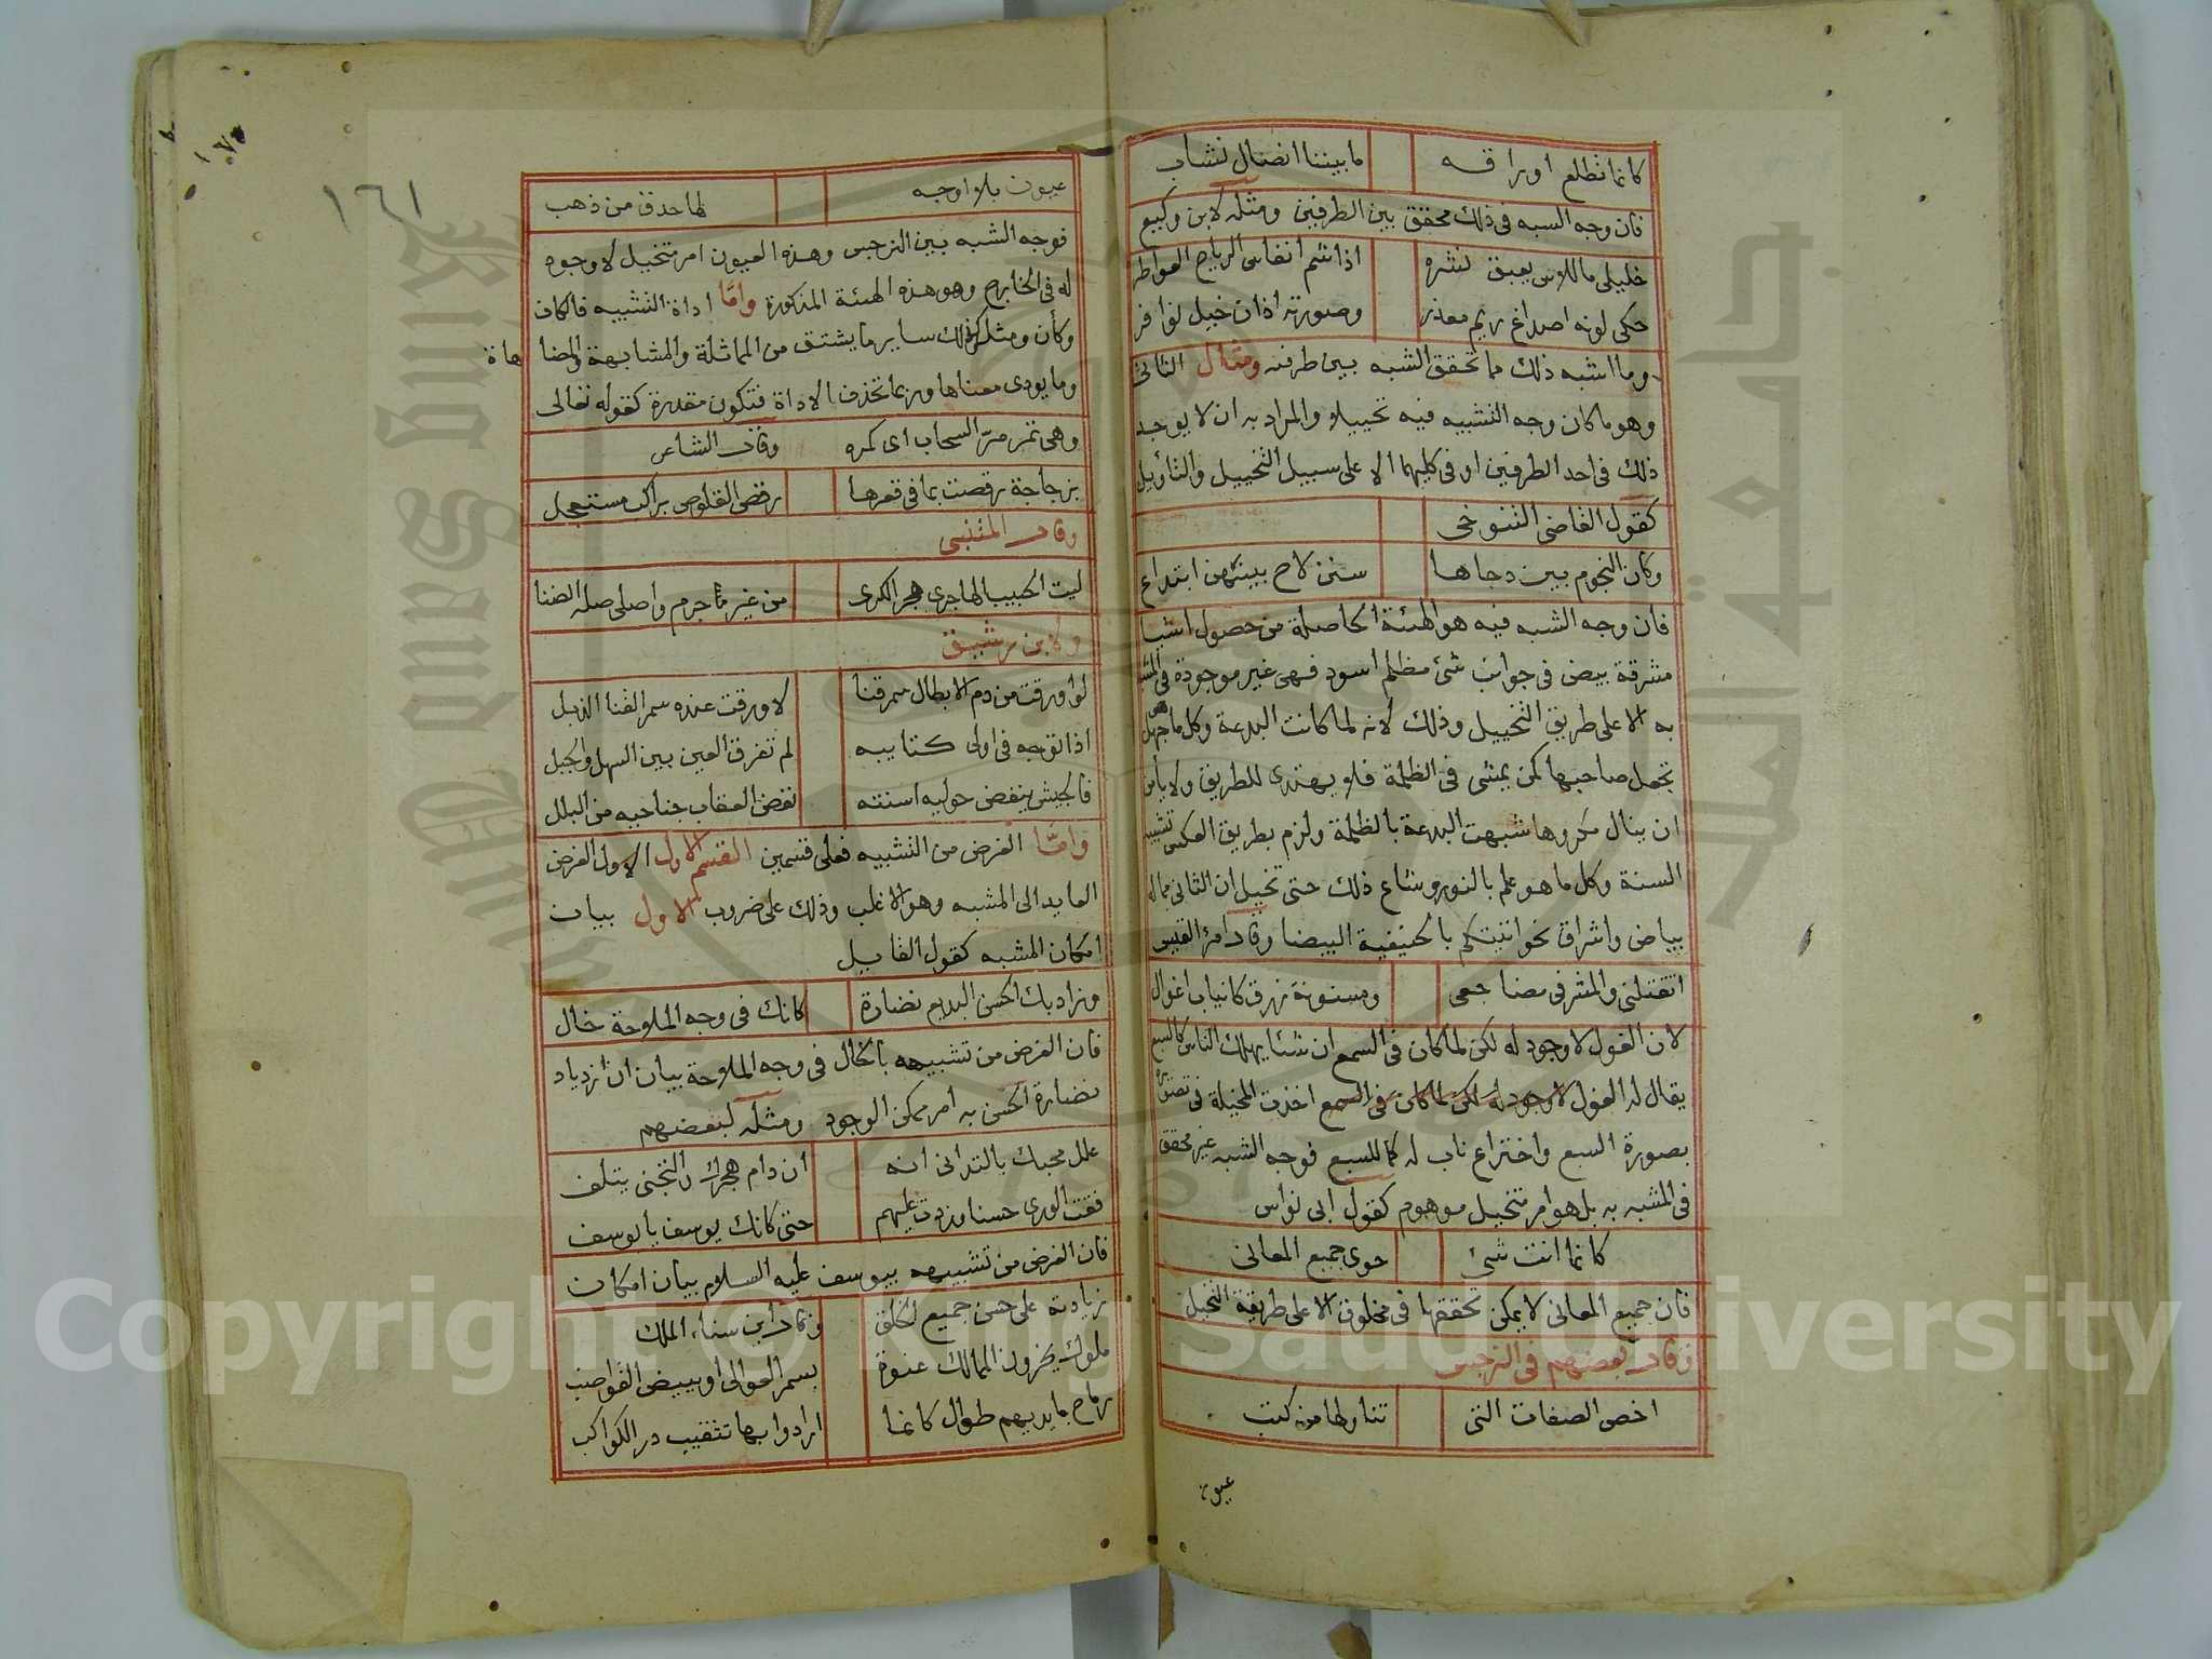 كانما تطلع اوراقه ما بيننا انصال نشاب
فان وجه الشبه في ذلك محقق بين الطرفين ومثله لابن وكيع
خليلي ما للاس يعبق نشره اذا شم انفاس الرياح العواطر
حكى لونه اصداغ ريم معذر وصورته اذان خيل نوافر
وما اشبه ذلك مما تحقق الشبه بين طرفيه ومثال الثاني
وهو ما كان وجه التشبيه فيه تخييلا والمراد به ان لا يوجد
ذلك في احد الطرفين او في كليهما الا على سبيل التخييل والتأويل
كقول القاضي التنوخي
وكان النجوم بين دجاها سنن لاح بينهن ابتداع
فان وجه الشبه فيه هو الهيئة الحاصلة من حصول اشيا
مشرقة بيض في جوانب شئ مظلم اسود فهي غير موجودة في المشبه
به الا على طريق التخييل وذلك لانه لما كانت البدعة وكل ما هي جهل
تجعل صاحبها كمن يمشي في الظلمة فلا يهتدى للطريق ولا يأمن
ان ينال مكروها شبهت البدعة بالظلمة ولزم بطريق العكس تشبيه
السنة وكل ما هو علم بالنور وشاع ذلك حتى تخيل ان الثاني مما له
بياض واشراق نحو اتيتكم بالحنيفية البيضا وقال امرؤ القيس
اتقتلني والمشرفي مضاجعي ومسنونة زرق كانياب اغوال
لان الغول لا وجود له لكن لما كان في السمع ان شئا يهلك الناس كالسبع
يقال له الغول لا وجود له لكن لما كان في السمع اخذت المخيلة في تصويره
بصورة السبع واختراع ناب له كما للسبع فوجه الشبه غير محقق
في المشبه به بل هو امر متخيل موهوم كقول ابي نواس
كانما انت شئ حوى جميع المعاني
فان جميع المعاني لا يمكن تحققها في مخلوق الا على طريقة التخيل
وقال بعضهم في النرجس
اخص الصفات التي تناولها من كثب
عيون
١٦١
عيون بلا اوجه لها حدق من ذهب
فوجه الشبه بين النرجس وهذه العيون امر متخيل لا وجود
له في الخارج وهو هذه الهيئة المذكورة واما اداة التشبيه فالكاف
وكأن ومثل وكذلك ساير ما يشتق من المماثلة والمشابهة والمضاهاة
وما يودى معناها وربما تحذف الاداة فتكون مقدرة كقوله تعالى
وهي تمر مر السحاب اى كمره وقال الشاعر
بزجاجة رقصت بما في قعرها رقص القلوص براكب مستعجل
وقال المتنبي
ليت الحبيب الهاجرى هجر الكرى من غير ما جرم واصلي صلة الضنا
ولابن رشيق
لو اورقت من دم الابطال سمر قنا لاورقت عنده سمر القنا الذبل
اذا توجه في اولى كتايبه لم تفرق العين بين السهل والجبل
فالجيش ينفض حوليه اسنته نفض العقاب جناحيه من البلل
واما الغرض من التشبيه فعلى قسمين القسم الاول الاول الغرض
العايد الى المشبه وهو الاغلب وذلك على ضروب الاول بيان
امكان المشبه كقول القايل
وزاد بك الحسن البديع نضارة كانك في وجه الملاحة خال
فان الغرض من تشبيهه بالخال في وجه الملاحة بيان ان ازدياد
نضارة الحسن به امر ممكن الوجود ومثله لبعضهم
علل محبك بالتدانى انه ان دام هجرك والتجني يتلف
فقت الورى حسنا وزدت عليهم حتى كانك يوسف يا يوسف
فان الغرض من تشبيهه بيوسف عليه السلام بيان امكان
زيادته على حسن جميع الخلق وقال ابن سناء الملك
ملوك يحوزون الممالك عنوة بسمر العوالى او ببيض القواضب
رماح بايديهم طوال كانما ارادوا بها تثقيب در الكواكب
Copyright © King Saud University
King Saud University